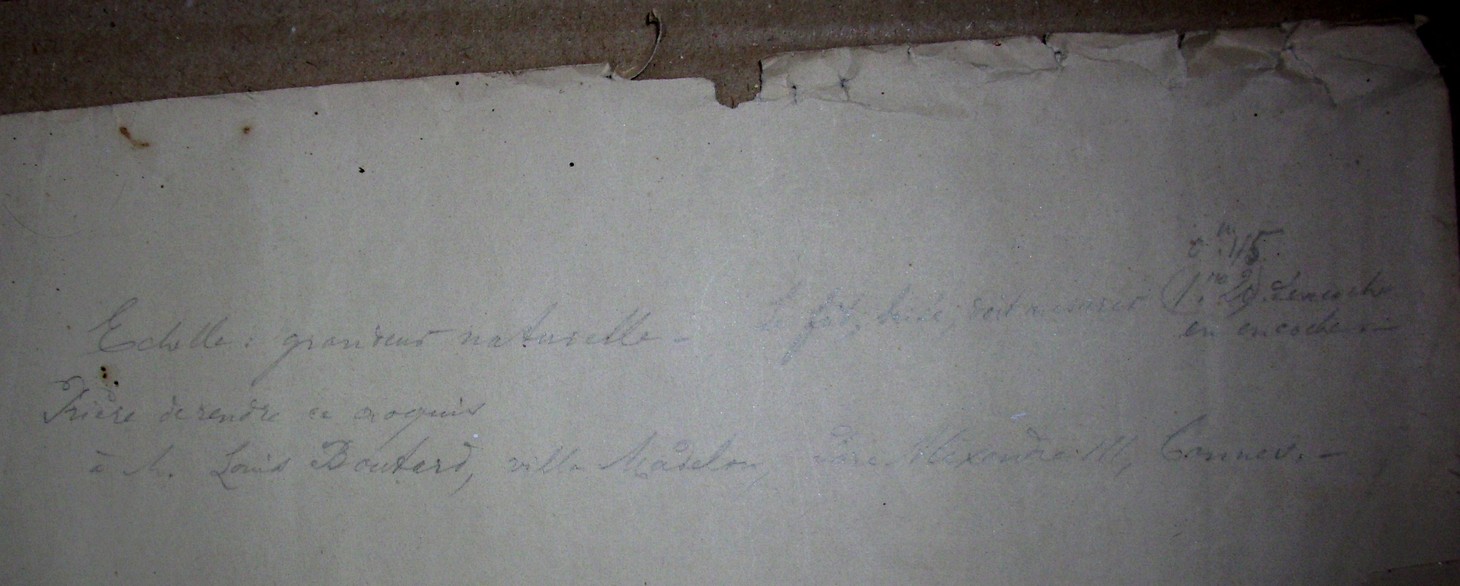 0.m 115
Echelle : grandeur naturelle - Le fût, doit mesurer (1.m 20) d'encoche
en encoche -
Prière de rendre ce croquis
à M. Louis Boutard, villa Madelon, Alexandre III, Cannes. -